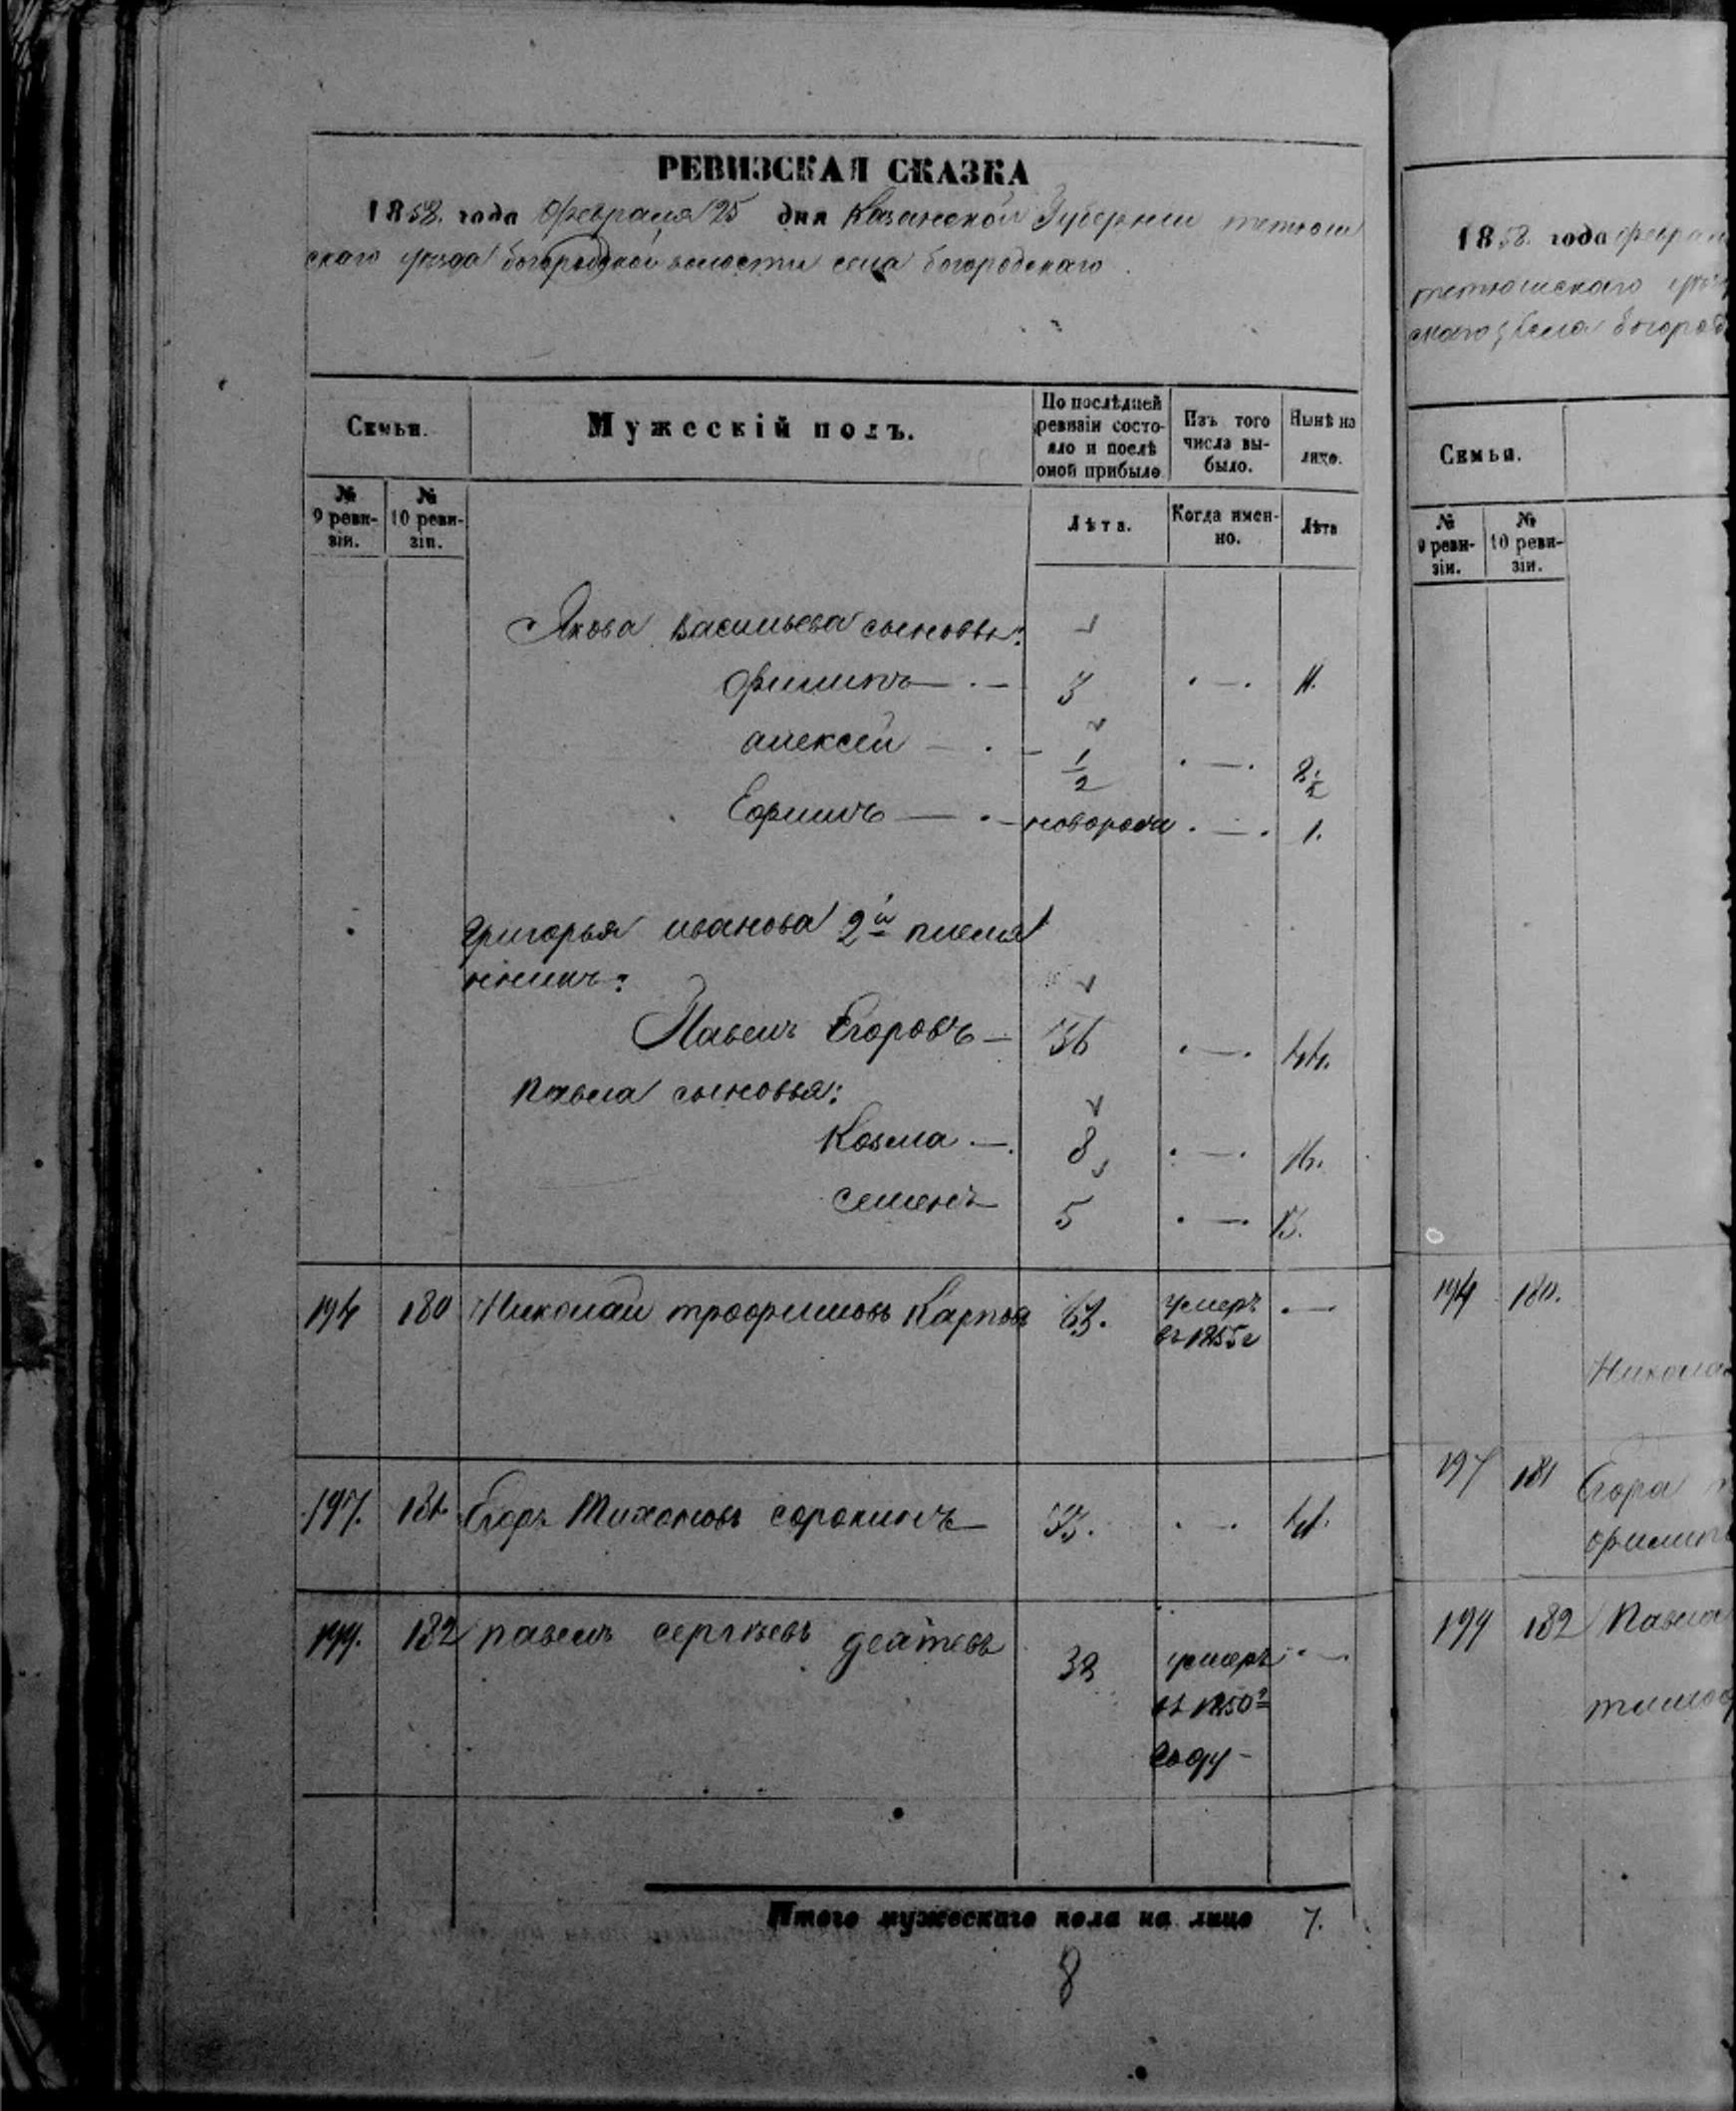 РЕВИЗСКАЯ СКАЗКА
1858. года Февраля 25 дня Казанской Губернии тетюш
скаго уезда богородской волости села богородскаго
Семьи.
Мужескій полъ.
По послѣдней ревизіи состо- яло и послѣ оной прибыло
Изъ того числа вы- было.
Нынѣ на лицо.
№ 9 реви- зіи.
№ 10 реви- зіи.
Лѣта.
Когда имен- но.
Лѣта
Якова Васильева сыновья:
филипъ — 3 · — · 11.
алексей — 1/2 · — · 8 1/2
Ефимъ — новорож · — · 1.
Григорья иванова 2й племя
нникъ:
Павелъ Егоровъ — 36 · — · 44.
Павла сыновья:
Козма — 8 · — · 16.
семенъ 5 · — · 13.
194 180 Николай трофимовъ Карповъ 63. умеръ въ 1855г · —
197. 181 Егоръ Тихоновъ сорокинъ 33. · — 41.
199. 182 павелъ сергѣевъ 38 умеръ · —
въ 1850м
году —
Итого мужескаго пола на лицо 7.
8
1858. года Февра
тетюшскаго
скаго, села Богород
Семьи.
№ 9 реви- зіи.
№ 10 реви- зіи.
194 180.
Никола
197 181 Егора
филип
199 182 Павла
тимоф